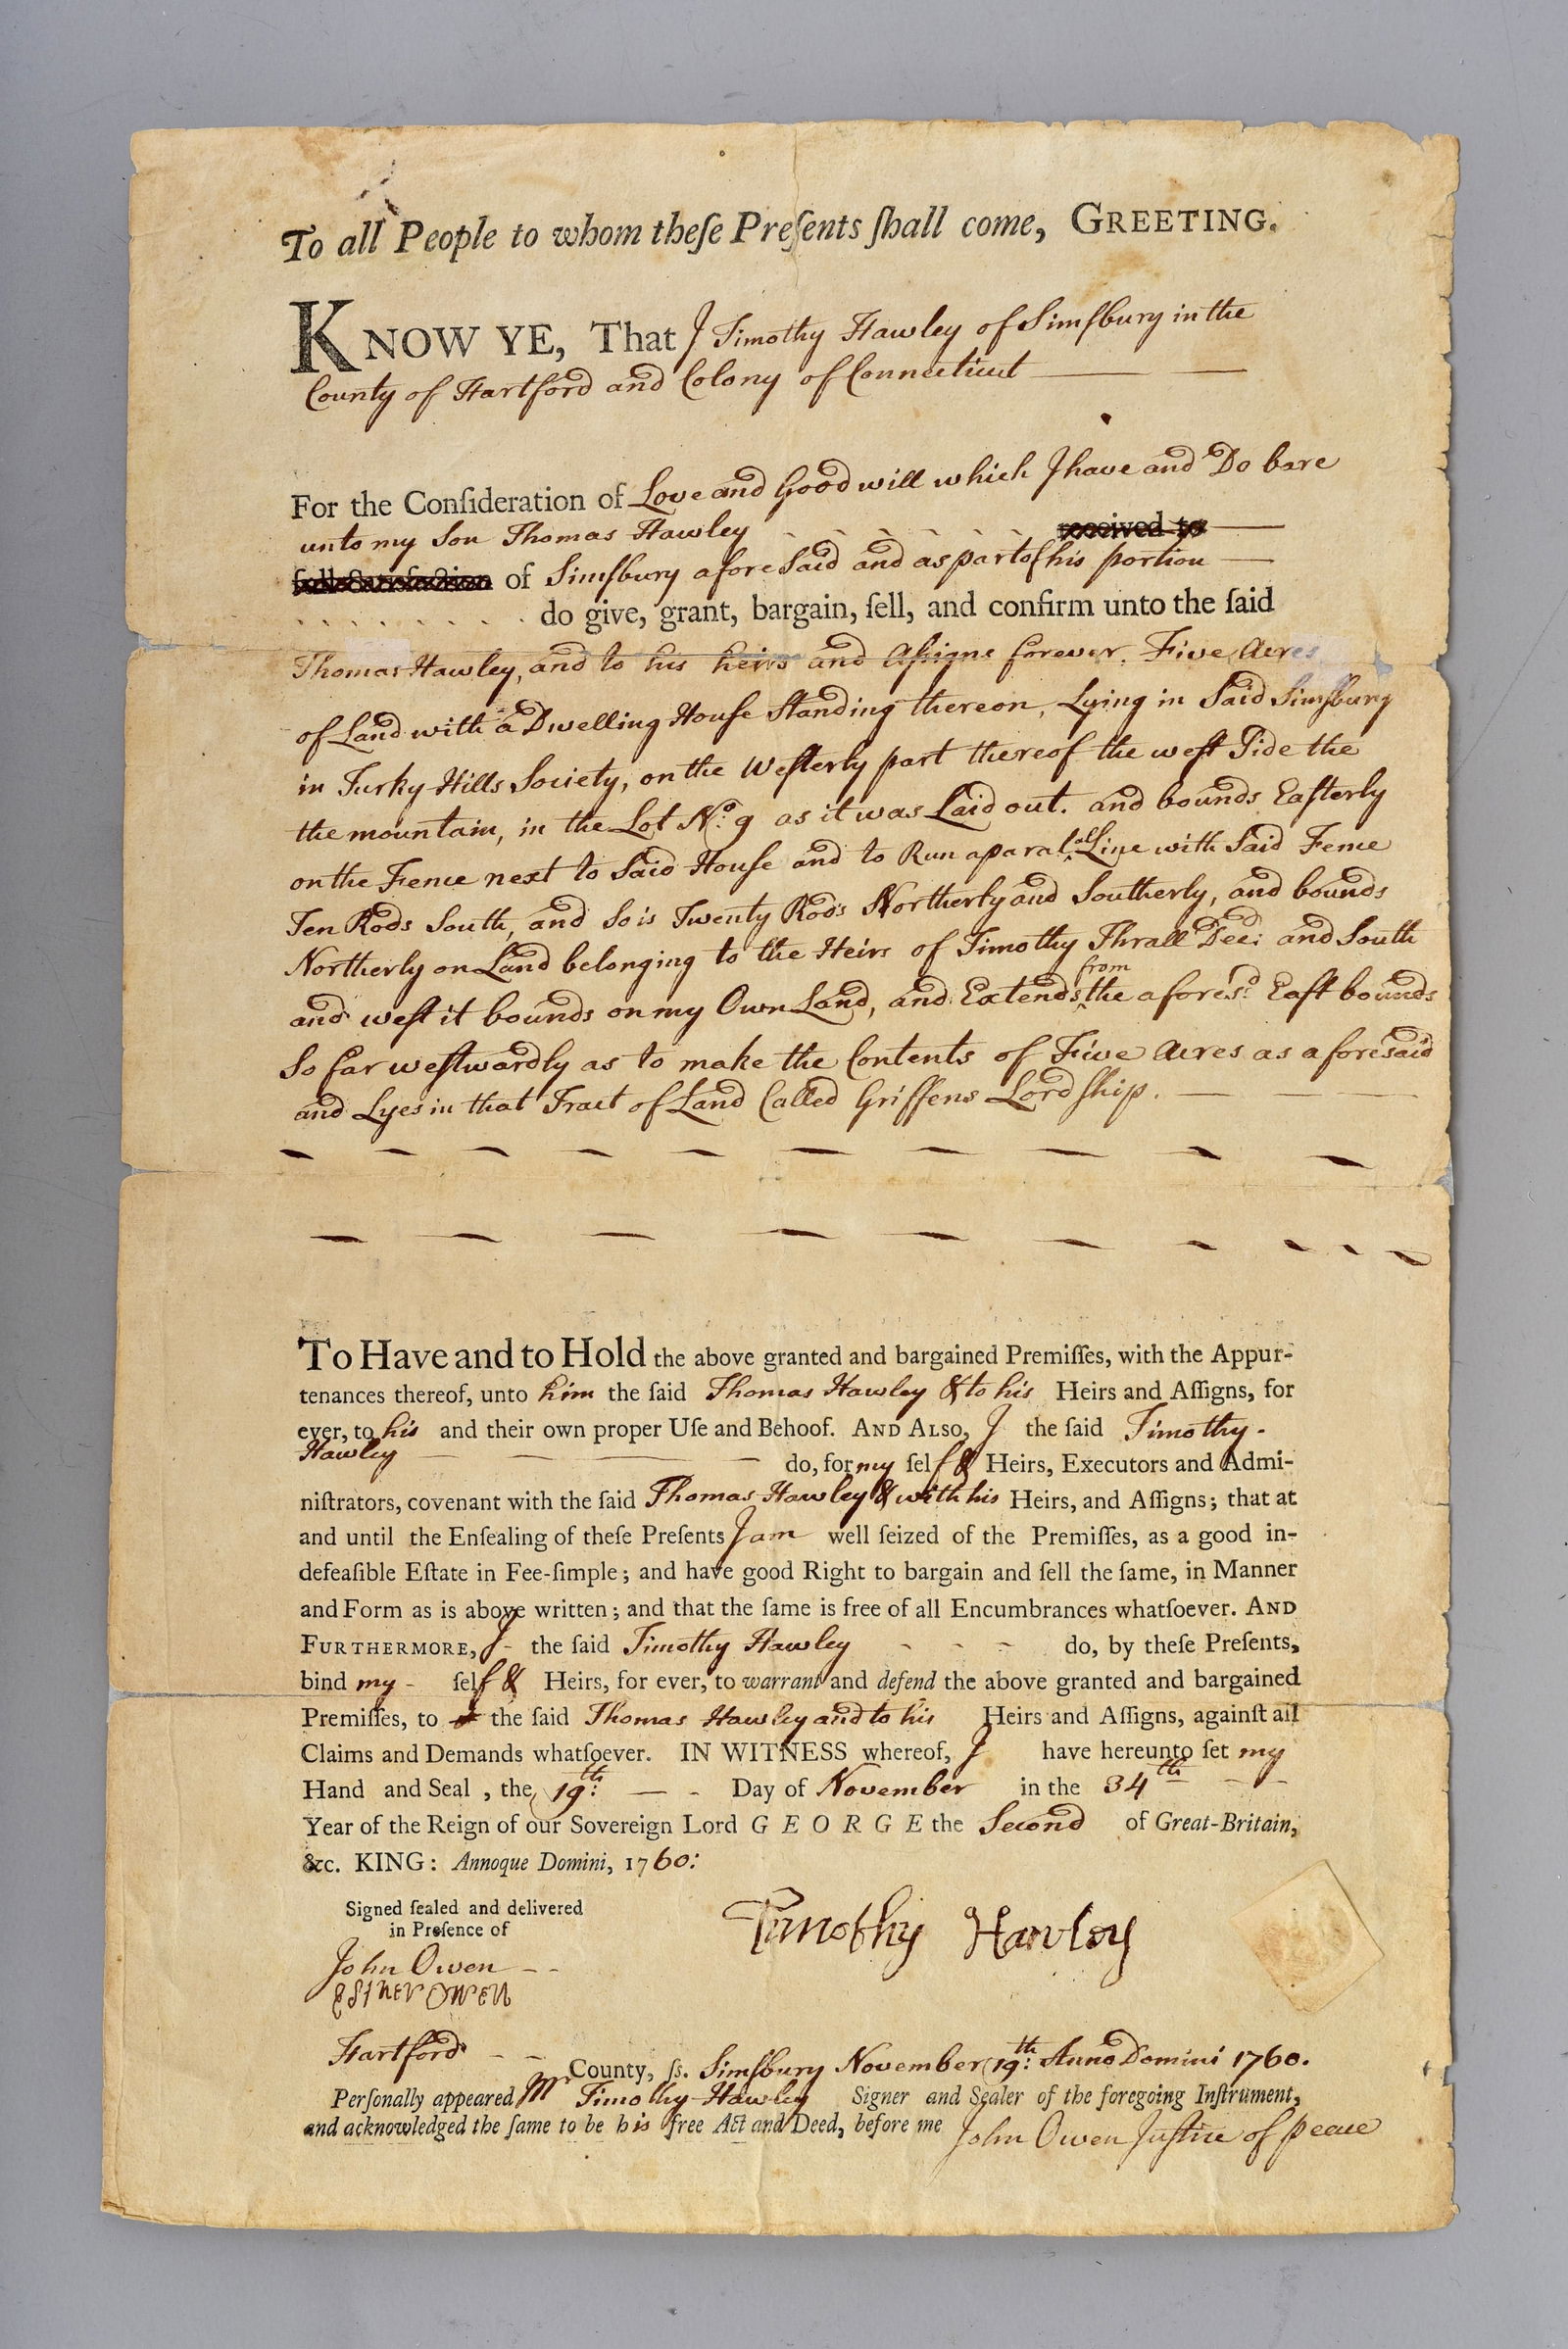 To all People to whom theſe Preſents ſhall come, GREETING.
KNOW YE, That I Timothy Hawley of Simſbury in the
County of Hartford and Colony of Connecticut
For the Conſideration of Love and Good will which I have and Do bare
unto my Son Thomas Hawley received to
full Satisfaction of Simſbury aforeSaid and as part of his portion
do give, grant, bargain, ſell, and confirm unto the ſaid
Thomas Hawley, and to his heirs and Aſsigns forever. Five Acres
of Land with a Dwelling Houſe Standing thereon, Lying in Said Simſbury
in Turky Hills Society, on the Weſterly part thereof the weſt Side the
the mountain, in the Lot No: 9 as it was Laid out. and bounds Eaſterly
on the Fence next to Said Houſe and to Run a paralel Line with Said Fence
Ten Rods South, and So is Twenty Rods Northerly and Southerly, and bounds
Northerly on Land belonging to the Heirs of Timothy Thrall Decd: and South
and weſt it bounds on my Own Land, and Extends from the aforesd: Eaſt bounds
So far weſtwardly as to make the Contents of Five Acres as aforesaid
and Lyes in that Tract of Land Called Griffens Lordſhip.
To Have and to Hold the above granted and bargained Premiſſes, with the Appur-
tenances thereof, unto him the ſaid Thomas Hawley & to his Heirs and Aſſigns, for
ever, to his and their own proper Uſe and Behoof. AND ALSO, I the ſaid Timothy
Hawley do, for my ſelf & Heirs, Executors and Admi-
niſtrators, covenant with the ſaid Thomas Hawley & with his Heirs, and Aſſigns; that at
and until the Enſealing of theſe Preſents I am well ſeized of the Premiſſes, as a good in-
defeaſible Eſtate in Fee-ſimple; and have good Right to bargain and ſell the ſame, in Manner
and Form as is above written; and that the ſame is free of all Encumbrances whatſoever. AND
FURTHERMORE, I the ſaid Timothy Hawley do, by theſe Preſents,
bind my ſelf & Heirs, for ever, to warrant and defend the above granted and bargained
Premiſſes, to the ſaid Thomas Hawley and to his Heirs and Aſſigns, againſt all
Claims and Demands whatſoever. IN WITNESS whereof, I have hereunto ſet my
Hand and Seal, the 19th: Day of November in the 34th
Year of the Reign of our Sovereign Lord GEORGE the Second of Great-Britain,
&c. KING: Annoque Domini, 1760:
Signed ſealed and delivered
in Preſence of
John Owen
Esther Owen
Timothy Hawley
Hartford County, ſs. Simſbury November 19th: Anno Domini 1760.
Perſonally appeared Mr Timothy Hawley Signer and Sealer of the foregoing Inſtrument,
and acknowledged the ſame to be his free Act and Deed, before me John Owen Juſtice of peace